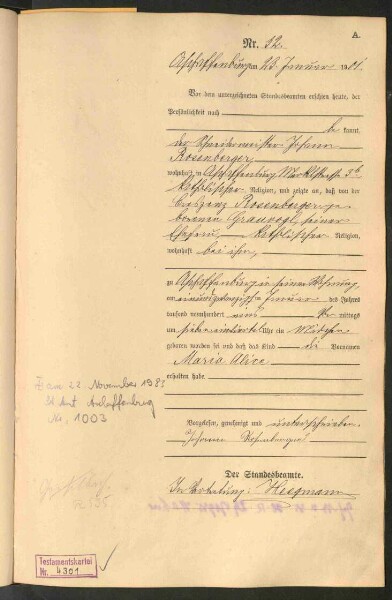 A.
Nr. 32.
Aschaffenburg am 23. Januar 1901.
Vor dem unterzeichneten Standesbeamten erschien heute, der
Persönlichkeit nach
be kannt,
der Schneidermeister Johann
Rosenberger
wohnhaft in Aschaffenburg
katholischer Religion, und zeigte an, daß von der
Rosenberger, ge-
borenen Grauvogl, seiner
Ehefrau, katholischer Religion,
wohnhaft bei ihm,
zu Aschaffenburg in seiner Wohnung
am einundzwanzigsten Januar des Jahres
tausend neunhundert eins mittags
um sieben Uhr ein Mädchen
geboren worden sei und daß das Kind die Vornamen
Maria Alice
erhalten habe
Vorgelesen, genehmigt und unterschrieben
Johann Rosenberger
Der Standesbeamte.
In Vertretung:
am 22. November 198
Aschaffenburg
Nr. 1003
Testamentskartei
Nr. 4301